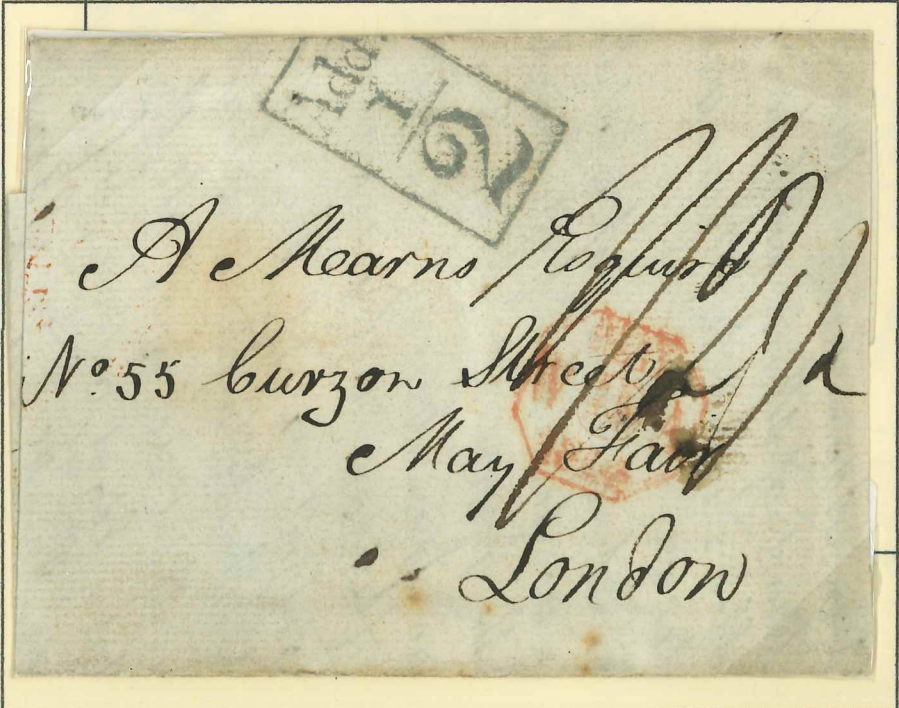 Addl
1/2
A Mearns Esquire
No. 55 Curzon Street
May Fair
London